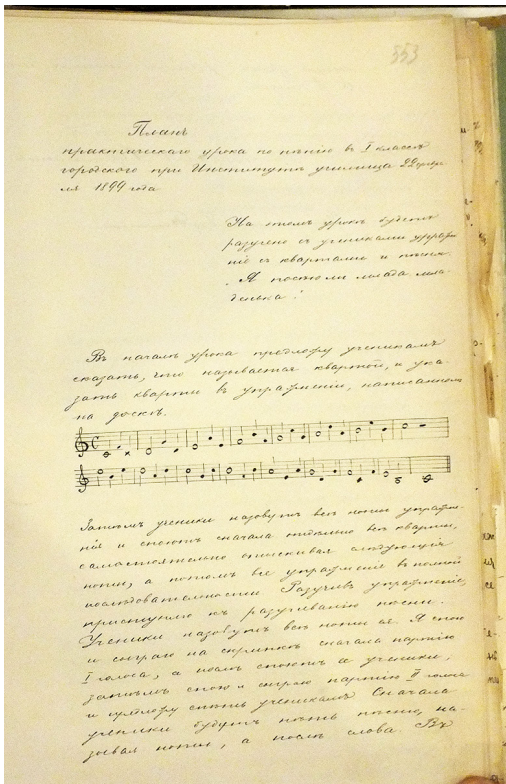 353
Планъ
практическаго урока по пѣнію въ I классѣ
городского при Институтѣ училища 22 февра-
ля 1899 года
На этомъ урокѣ будетъ
разучено съ учениками упражне-
ніе съ квартами и пѣсня
„Я посѣю ли млада мла-
денька".
Въ началѣ урока предложу ученикамъ
сказать, что называется квартой, и ука-
зать кварты въ упражненіи, написанномъ
на доскѣ.
Затѣмъ ученики назовутъ всѣ ноты упражне-
нія и споютъ сначала отдѣльно всѣ кварты,
самостоятельно отыскивая слѣдующія
ноты, а потомъ все упражненіе въ полной
послѣдовательности. Разучивъ упражненіе,
приступлю къ разучиванію пѣсни.
Ученики назовутъ всѣ ноты ея. Я спою
и сыграю на скрипкѣ сначала партію
I голоса, а послѣ споютъ и ученики,
затѣмъ спою и сыграю партію II голоса
и предложу спѣть ученикамъ. Сначала
ученики будутъ пѣть пѣсню, на-
зывая ноты, а послѣ слова. Въ